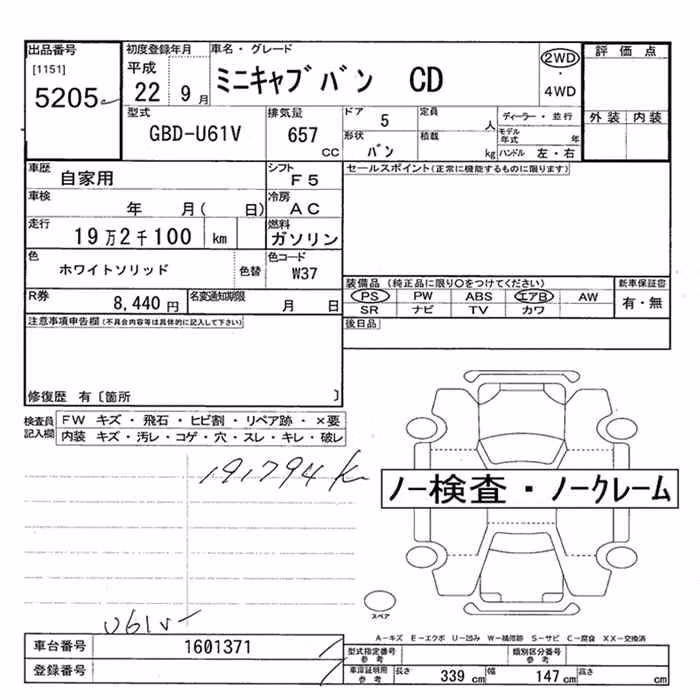 出品番号 初度登録年月 車名・グレード 2WD 評価点
[1151] 平成 ミニキャブバン CD ・
5205 22 9月 4WD
型式 排気量 ドア 5 定員 人 ディーラー・並行 外装 内装
GBD-U61V 657 cc 形状 バン 積載 kg モデル年式 年
ハンドル 左・右
車歴 自家用 シフト F5 セールスポイント(正常に機能するものに限ります)
車検 年 月( 日) 冷房 AC
走行 19万2千100 km 燃料 ガソリン
色 ホワイトソリッド 色替 色コード W37
装備品 (純正品に限り○をつけてください) 新車保証書
R券 8,440円 名変通知期限 月 日 PS PW ABS エアB AW 有・無
SR ナビ TV カワ
注意事項申告欄(不具合内容等は具体的に記入して下さい) 後日品
修復歴 有〔箇所 〕
検査員記入欄 FW キズ・飛石・ヒビ割・リペア跡・×要
内装 キズ・汚レ・コゲ・穴・スレ・キレ・破レ
191794k
ノー検査・ノークレーム
スペア
U61V-
A-キズ E-エクボ U-凹み W-補修跡 S-サビ C-腐食 XX-交換済
車台番号 1601371 型式指定番号 参考 類別区分番号 参考
登録番号 車庫証明用 参考 長さ 339cm 幅 147cm 高さ cm